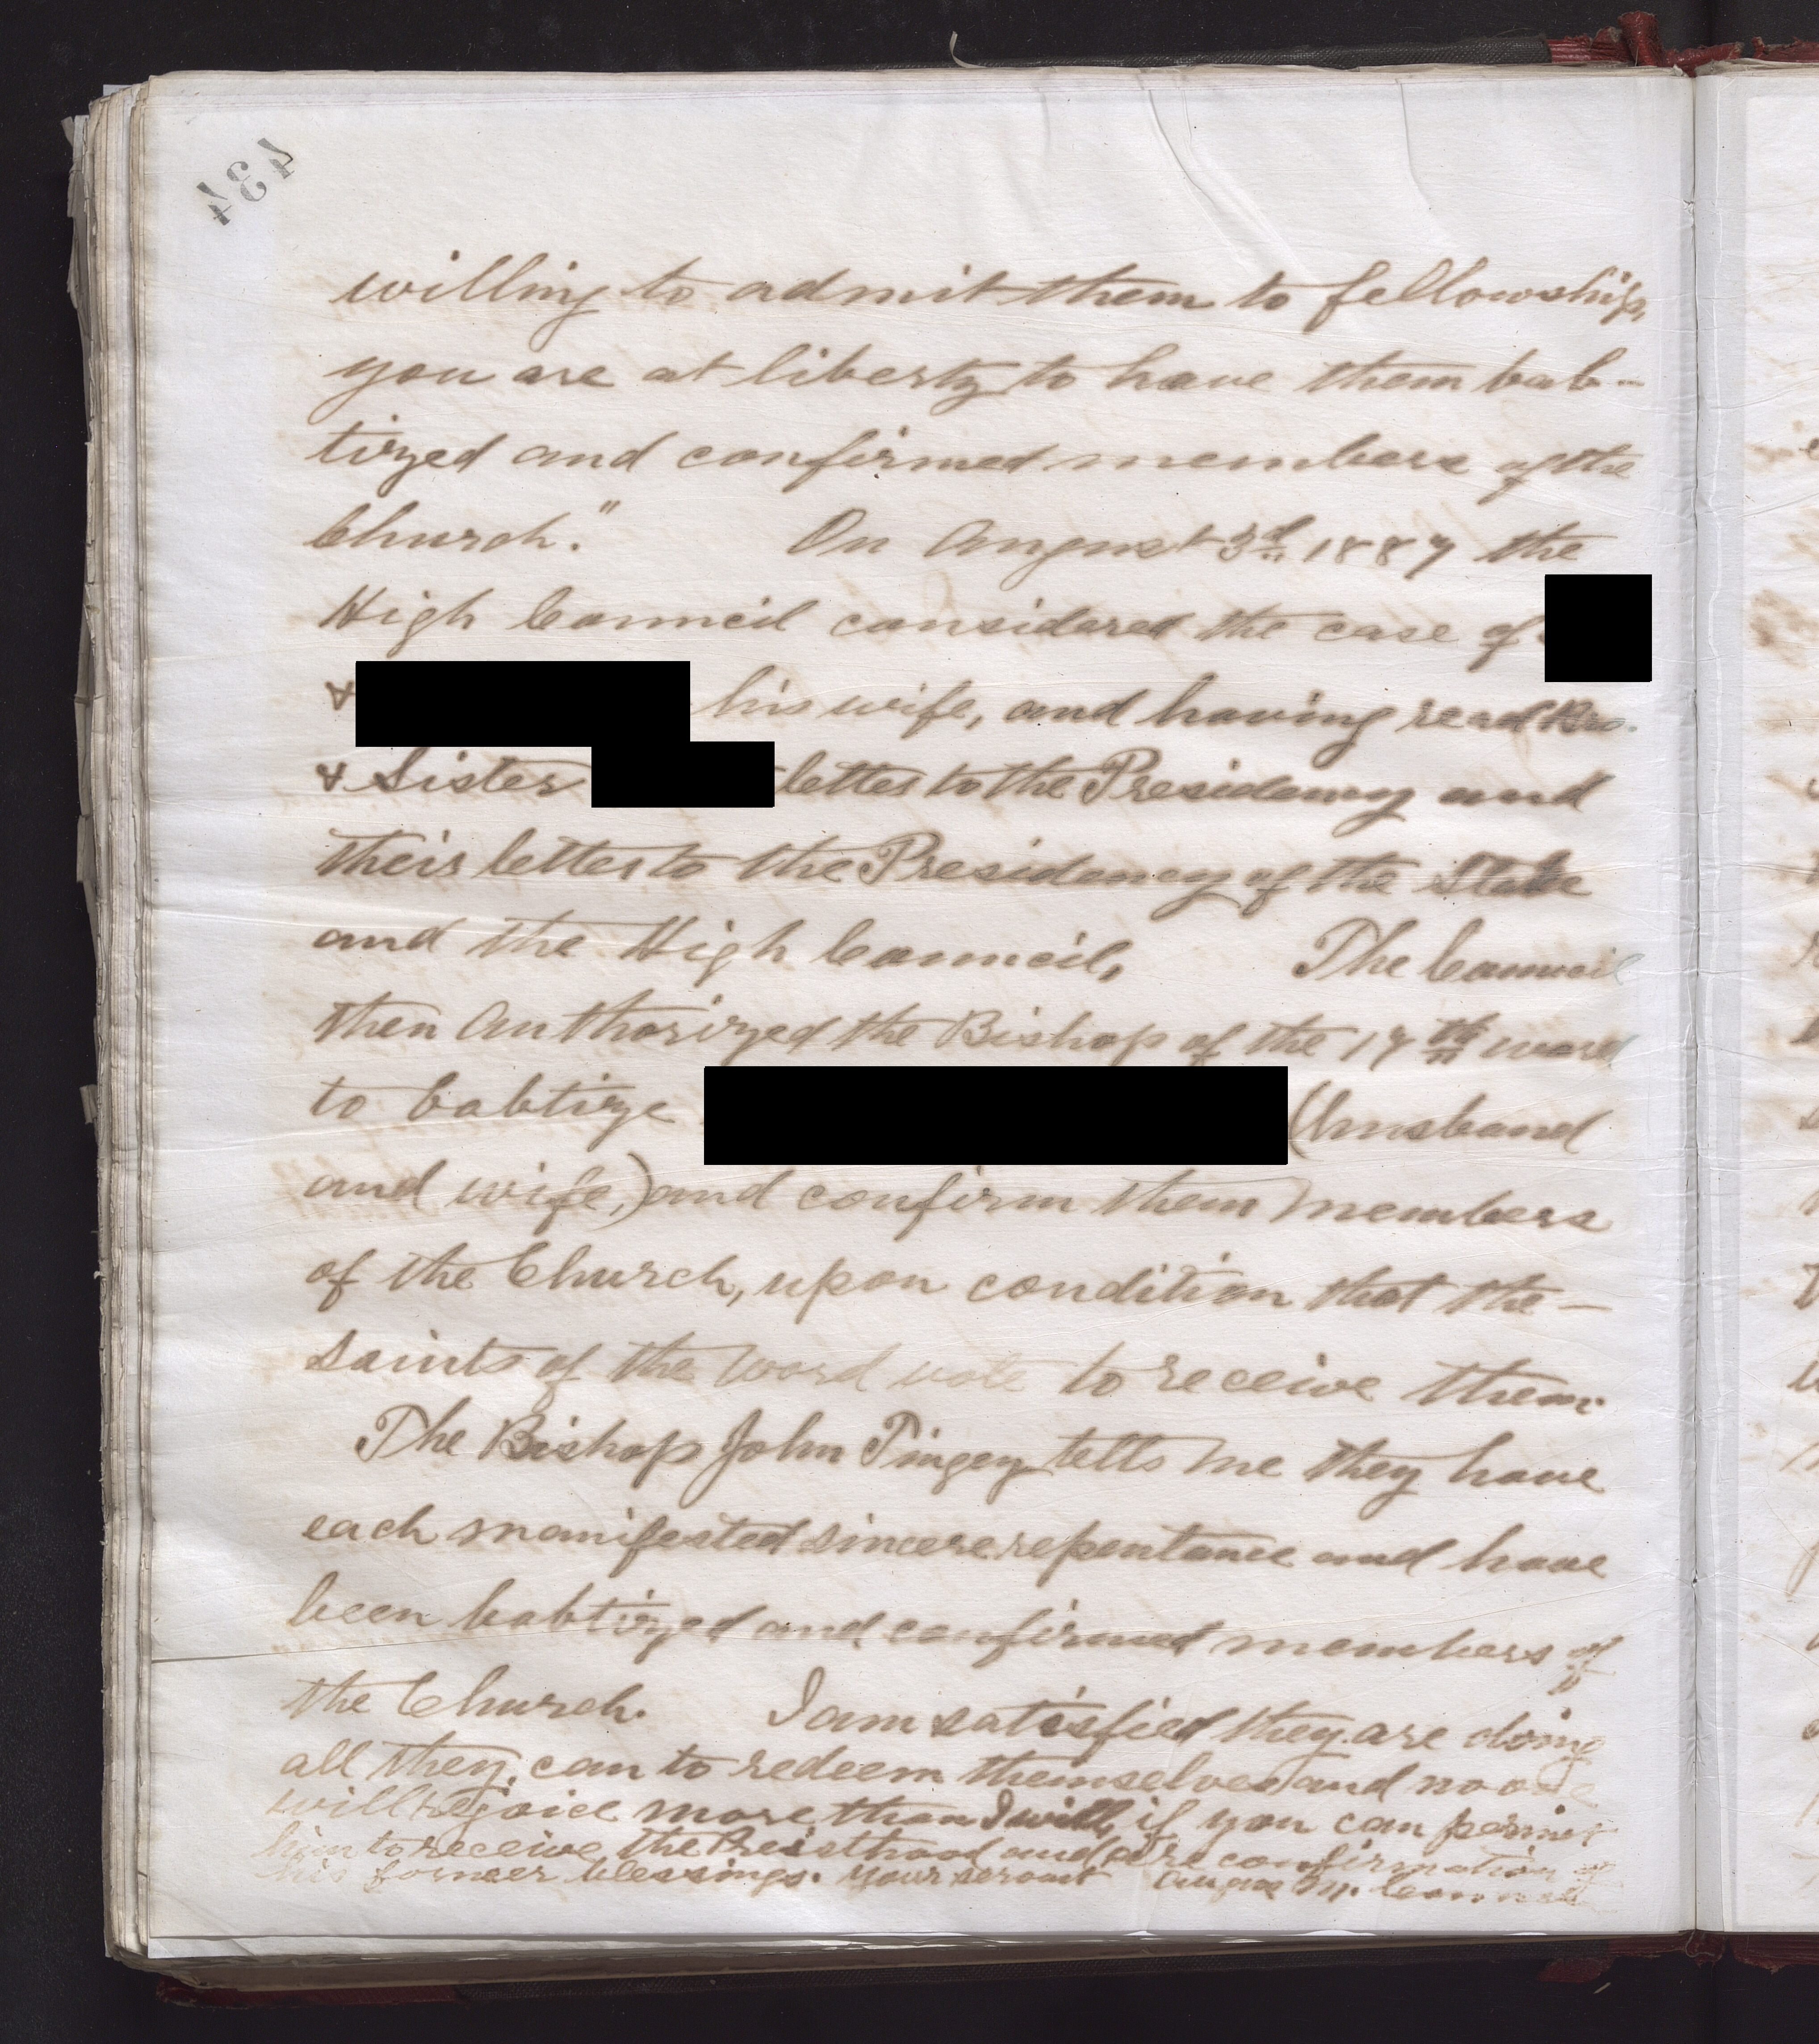 434
willing to admit them to fellowship,
you are at liberty to have them bab-
tized and confirmed members of the
Church." On August 3d 1887 the
High Council considered the case of
& his wife, and having read Bro.
& Sister letter to the Presidency and
their letter to the Presidency of the Stake
and the High Council, The Council
then Authorized the Bishop of the 17th ward
to babtize (husband
and wife,) and confirm them members
of the Church, upon condition that the —
saints of the Ward vote to receive them.
The Bishop John Tingey tells me they have
each manifested sincere repentance and have
been babtized and confirmed members of
the Church. I am satisfied they are doing
all they can to redeem themselves and no one
will rejoice more than I will, if you can permit
him to receive the Priesthood and a reconfirmation of
his former blessings. Your servant Angus M. Cannon